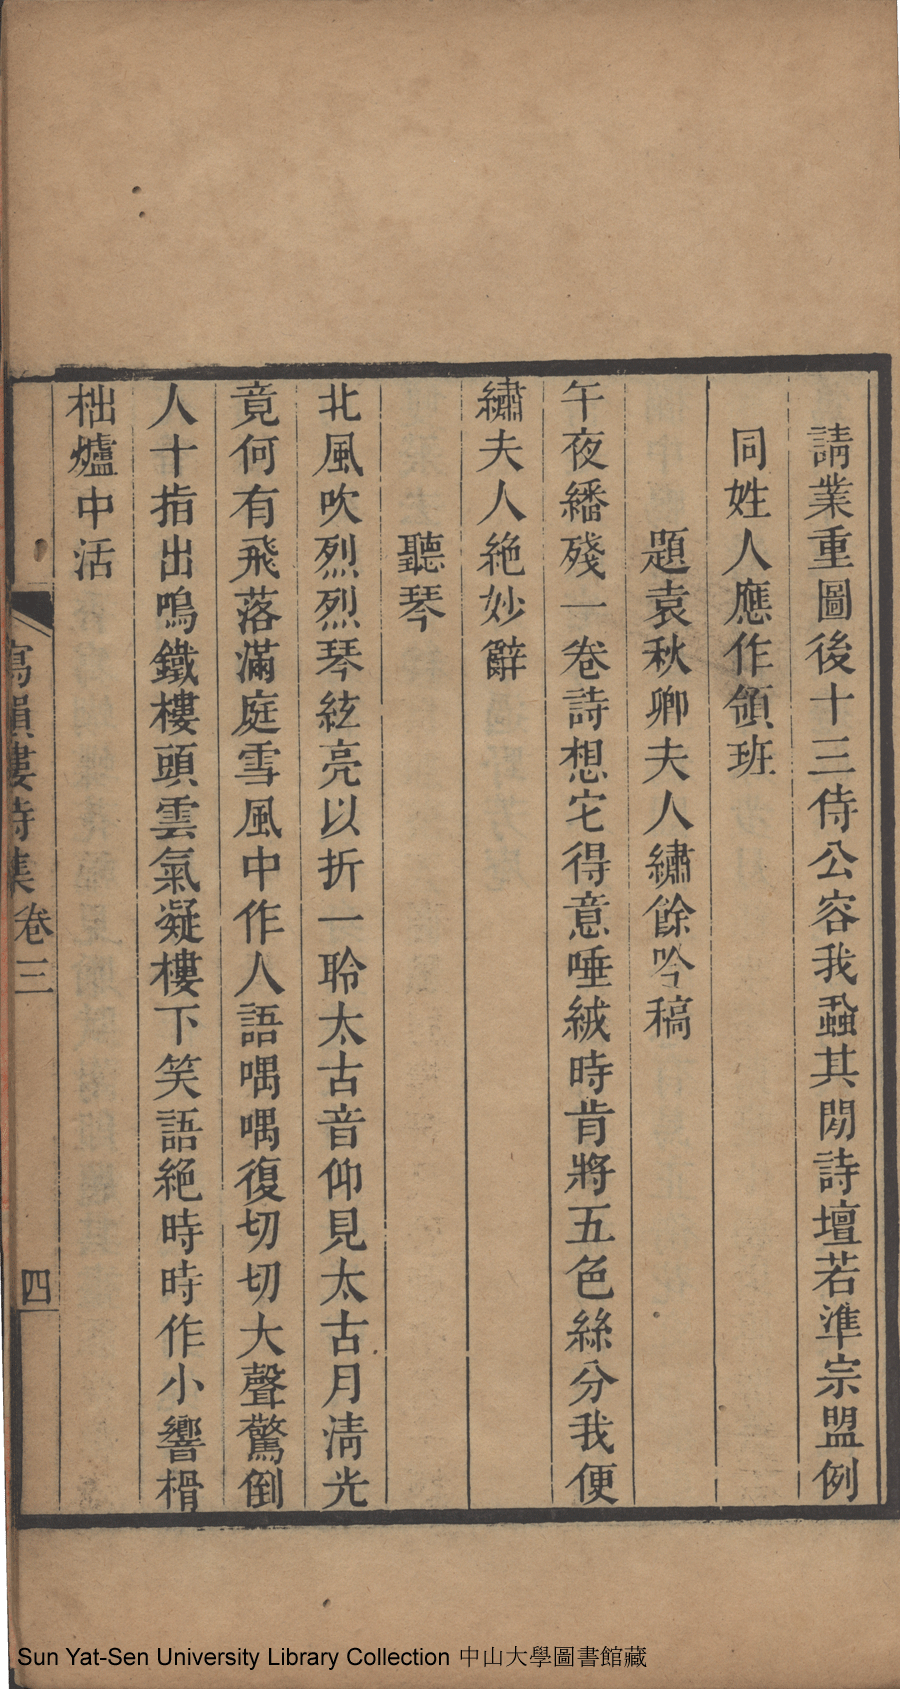 請業重圖後十三侍公容我蝨其閒詩壇若準宗盟例
同姓人應作領班
題袁秋卿夫人繡餘吟稿
午夜繙殘一卷詩想宅得意唾絨時肯將五色絲分我便
繡夫人絶妙辭
聽琴
北風吹烈烈琴絃亮以折一聆太古音仰見太古月淸光
竟何有飛落滿庭雪風中作人語喁喁復切切大聲驚倒
人十指出鳴鐵樓頭雲氣凝樓下笑語絶時時作小響榾
柮爐中活
寫韻樓詩集 卷三 四
Sun Yat-Sen University Library Collection 中山大學圖書館藏